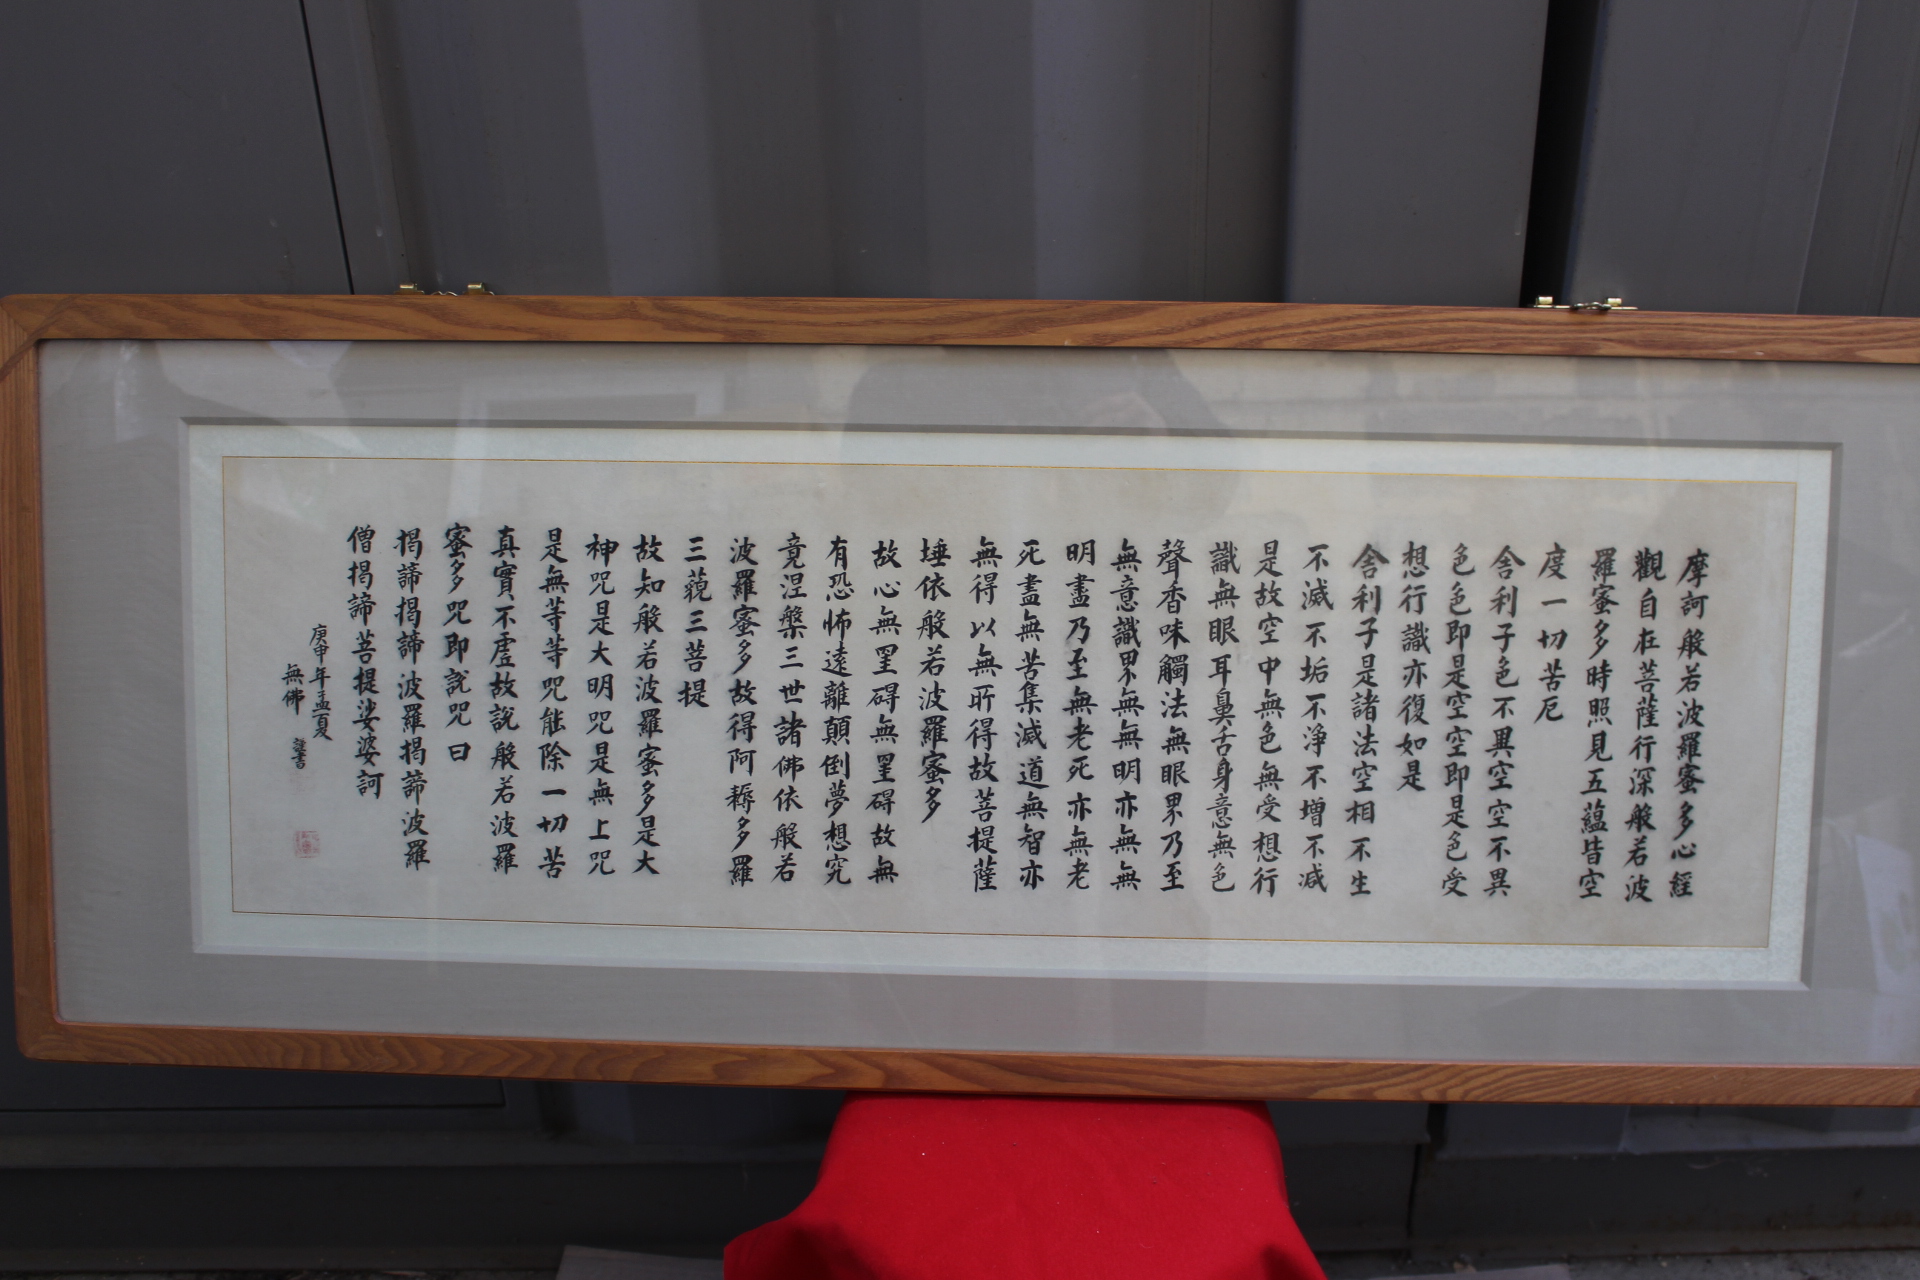 摩訶般若波羅蜜多心經
觀自在菩薩行深般若波
羅蜜多時照見五蘊皆空
度一切苦厄
舍利子色不異空空不異
色色即是空空即是色受
想行識亦復如是
舍利子是諸法空相不生
不滅不垢不淨不增不減
是故空中無色無受想行
識無眼耳鼻舌身意無色
聲香味觸法無眼界乃至
無意識界無無明亦無無
明盡乃至無老死亦無老
死盡無苦集滅道無智亦
無得以無所得故菩提薩
埵依般若波羅蜜多
故心無罣碍無罣碍故無
有恐怖遠離顛倒夢想究
竟涅槃三世諸佛依般若
波羅蜜多故得阿耨多羅
三藐三菩提
故知般若波羅蜜多是大
神咒是大明咒是無上咒
是無等等咒能除一切苦
真實不虛故說般若波羅
蜜多咒即說咒曰
揭諦揭諦波羅揭諦波羅
僧揭諦菩提娑婆訶
庚申年孟夏
無佛 謹書